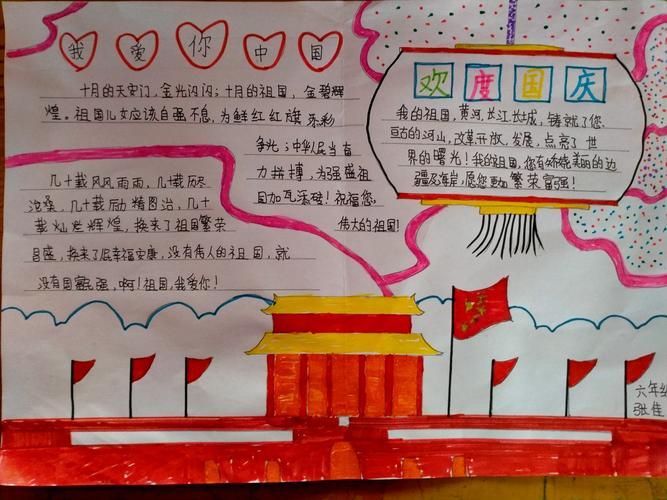 我爱你中国
十月的天安门，金光闪闪；十月的祖国，金碧辉
煌。祖国儿女应该自强不息，为鲜红红旗添彩
争光；中华民当奋
力拼搏，为强盛祖
国加瓦添砖！祝福您，
伟大的祖国！
几十载风风雨雨，几载历尽
沧桑，几十载励精图治，几十
载灿烂辉煌，换来了祖国繁荣
昌盛，换来了民幸福安康，没有伟人的祖国，就
没有国富民强，啊！祖国，我爱你！
欢度国庆
我的祖国，黄河、长江、长城，铸就了您
亘古的河山，改革开放，发展，点亮了世
界的曙光！我的祖国，您有娇娆美丽的边
疆及海岸，愿您更加繁荣富强！
六年级
张佳